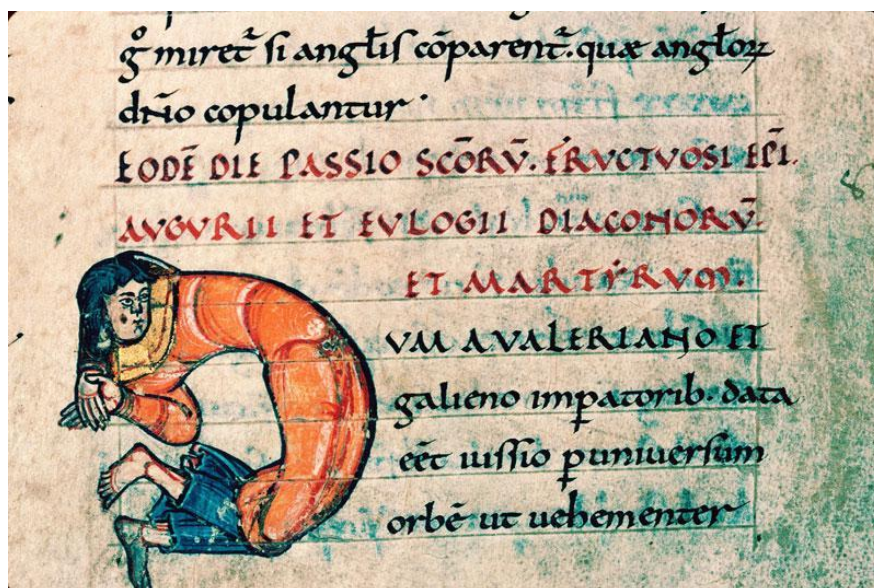 g̊ miret᷑ si angl̄is cōparent᷑. quæ angl̄oꝝ
dn̄io copulantur
EODĒ DIE PASSIO SCŌRV̄. FRVCTVOSI EP̄I.
AVGVRII ET EVLOGII DIACONORV̄.
ET MARTYRVM.
VM A VALERIANO ET
galieno imꝑatorib· data
eēt iussio ꝑ uniuersum
orbē ut uehementer